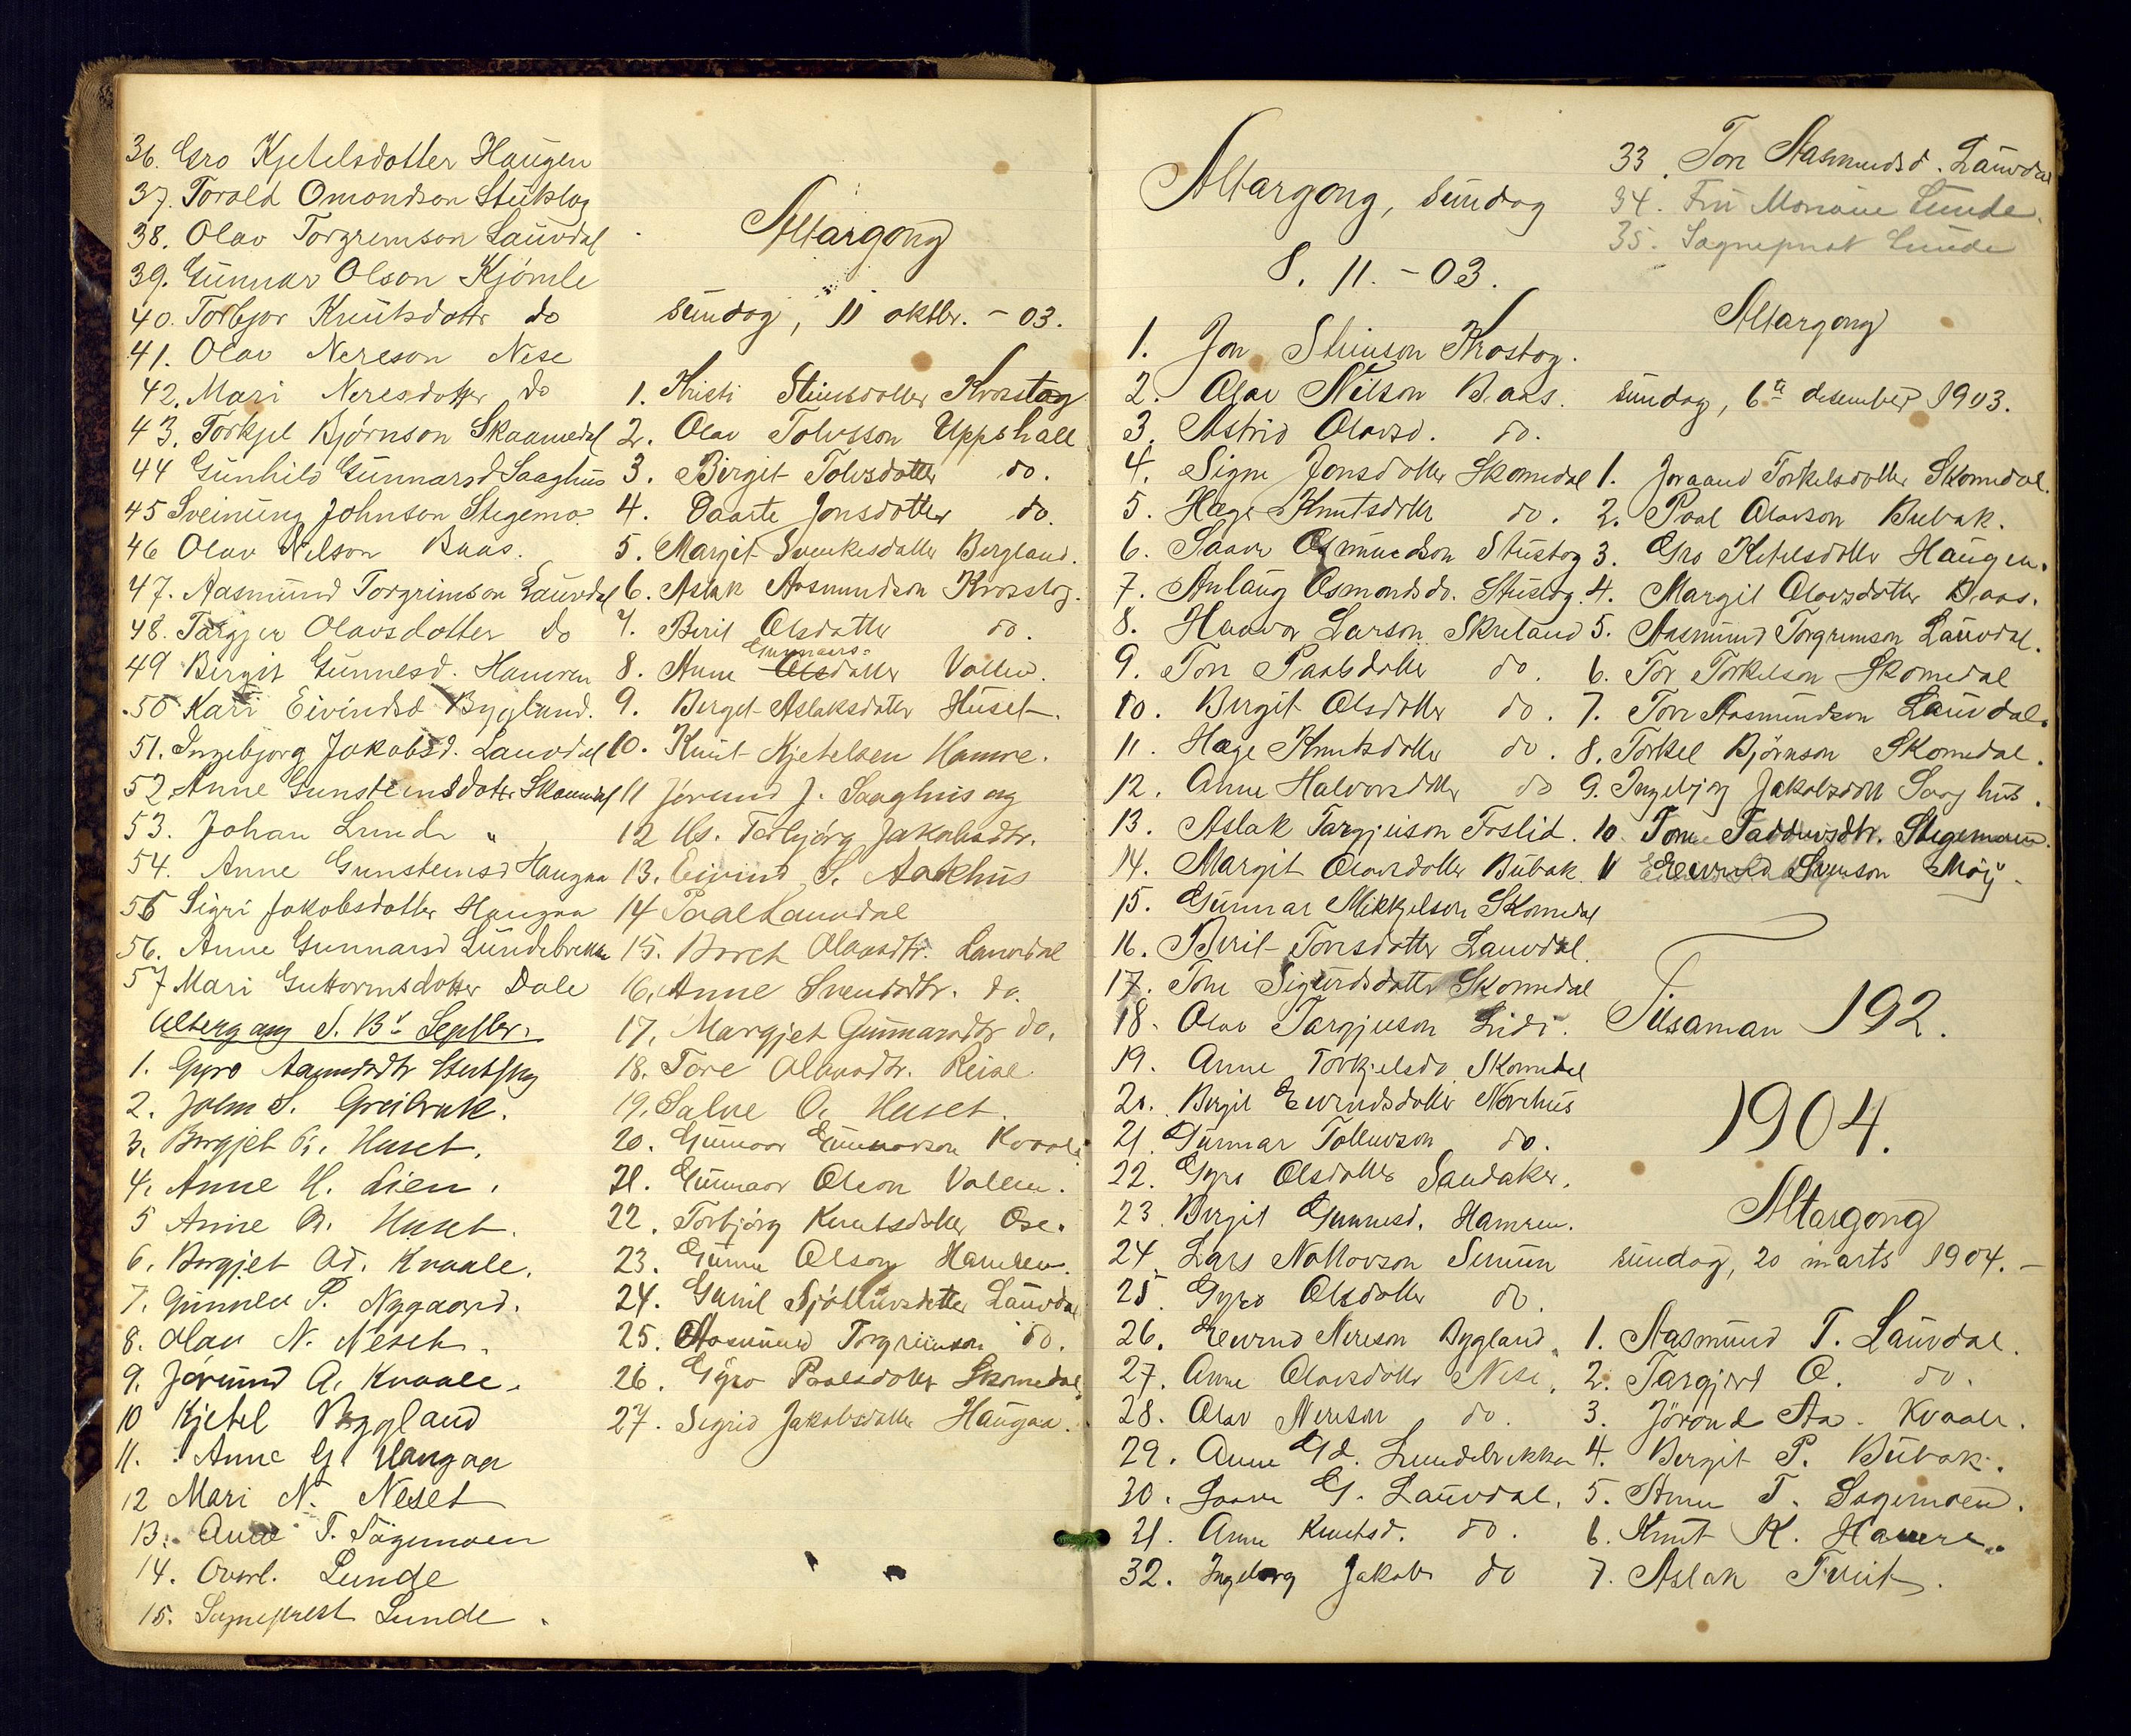 36. Gro Kjetelsdotter Haugen
37. Torald Omondson Stuklog
38. Olav Torgrimson Lauvdal
39. Gunnar Olson Kjømle
40. Torbjor Knutsdottr do
41. Olav Nereson Nese
42. Mari Neresdotter do
43. Torkjel Bjørnson Skaamedal
44 Gunhild Gunnarsd Saaghus
45 Sveinung Johnson Stegemo
46 Olav Nilson Baas.
47. Aasmund Torgrimson Lauvdal
48. Targjer Olavsdotter do
49 Birgit Gunnesd. Hamren
50 Kari Eivindsd Bygland.
51. Ingebjorg Jakobsd. Lauvdal
52 Anne Gunsteinsdoter Skaamedal
53. Johan Lunde "
54. Anne Gunsteinsd Haugaa
55 Sigri Jakobsdotter Haugaa
56. Anne Gunnarsd Lundebrekka
57 Mari Guttormsdotter Dale
Altergang S. 13. Septbr.
1. Gyro
2. John S. Greibrok.
3. Borgjet G. Huset.
4. Anne H. Lien.
5 Anne A. Huset.
6. Borgjet Ad. Kvaale.
7. Gunnild P. Nygaard.
8. Olav N. Neset.
9. Jørund A. Kvaale.
10 Kjetel Byggland
11. Anne G. Haugaa
12 Mari N. Neset
13. Anne T. Sagemoen
14. Overl. Lunde
15. Sogneprest Lunde.
Altargong
sundag, 11 oktbr. - 03.
1. Kristi Steinsdotter Krosstog
2. Olav Tolvsson Uppstall
3. Birgit Tolvsdotter do.
4. Daarte Jonsdotter do.
5. Margit Sveinkesdotter Bergland.
6. Aslak Aasmundson Krosstog.
7. Berit Olsdotter do.
8. Anne Gunnars- Olsdotter Vollen.
9. Berget Aslaksdotter Huset.
10. Knut Kjetelsen Hamre.
11 Jørund J. Saaghus og
12 Hs. Torbjørg Jakobsdtr.
13. Eivind S. Aakhus
14 Paal Lauvdal
15. Borch Olavsdtr. Lauvdal
16. Anne Svendsdtr. do.
17. Margjet Gunnarsdtr do.
18. Tore Olavsdtr. Reise
19. Salve O. Huset.
20. Gunnar Gunnarson Kvaale
21. Gunnar Olson Vollen.
22. Torbjørg Knutsdotter Ose.
23. Gunne Olson Hamren.
24. Gunil Gjøllnvsdotter Lauvdal
25. Aasmund Torgrimson do.
26. Gyro Paalsdotter Skomedal
27. Sigrid Jakobsdotter Haugaa.
Altargong, sundag
8. 11. - 03.
1. Jon Steinson Krostog.
2. Olav Nilson Baas.
3. Astrid Olavsd. do.
4. Signe Jonsdotter Skomedal
5. Hæge Knutsdotter do.
6. Saave Osmundson Stustog
7. Anlaug Osmondsdo. Stustog.
8. Haavor Larson Skreland
9. Tore Paalsdotter do.
10. Birgit Olsdotter do.
11. Hæge Knutsdotter do.
12. Anne Halvorsdotter do
13. Aslak Targjuson Foslid.
14. Margit Olavsdotter Bubak.
15. Gunnar Mikkjelson Skomedal
16. Berit Torsdotter Lauvdal.
17. Tone Sigurdsdotter Skomedal
18. Olav Targjuson Lidi.
19. Anne Torkjelsdo Skomedal
20. Birgit Eivindsdotter Norhus
21. Gunnar Tollevson do.
22. Gyro Olsdotter Sandaker.
23. Birgit Gunnesd. Hamren.
24. Lars Nottovson Senum
25. Gyro Olsdotter do.
26. Eivind Nereson Bygland.
27. Anne Olavsdotter Nese.
28. Olav Nereson do.
29. Anne Gd. Lundebrekka
30. Saave G. Lauvdal.
31. Anne Knutsd. do.
32. Ingeborg Jakobs do
33. Tore Aasmundsd. Lauvdal
34. Fru Lunde.
35. Sogneprest Lunde
Altargong
sundag, 6te desember 1903.
1. Joraand Torkelsdotter Skomedal.
2. Paal Olavson Bubak.
3. Gro Ketelsdotter Haugen.
4. Margit Olavsdotter Baas.
5. Aasmund Torgrimson Lauvdal.
6. Tor Torkelson Skomedal
7. Tore Aasmundson Lauvdal.
8. Torkel Bjørnson Skomedal.
9. Ingebjørg Jakobsdott Saaghus.
10 Tone Taddivsdtr. Stegemoen.
11 Eivind Svenson Møij.
Tilsaman 192.
1904.
Altargong
sundag, 20 marts 1904. -
1. Aasmund T. Lauvdal.
2. Targjerd O. do.
3. Jørond Aa. Kvaale.
4. Bergit P. Bubak.
5. Anne T. Sagemoen.
6. Knut K. Hamre.
7. Aslak Tveit.